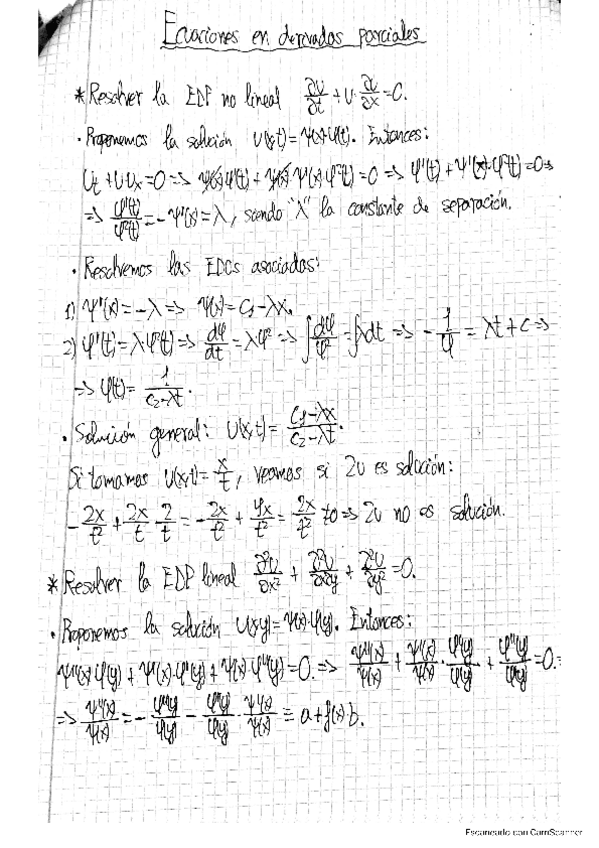 Ecuaciones en derivadas parciales
* Resolver la EDP no lineal ∂u/∂t + u·∂u/∂x = 0.
· Proponemos la solución u(x,t)=Ψ(x)·φ(t). Entonces:
Ut+UUx=0 => Ψ(x)·φ'(t)+Ψ(x)·Ψ'(x)·φ²(t)=0 => φ'(t)+Ψ'(x)·φ²(t)=0 =>
=> φ'(t)/φ²(t) = -Ψ'(x)=λ, siendo "λ" la constante de separación.
· Resolvemos las EDOs asociadas:
1) Ψ'(x)=-λ => Ψ(x)=C₁-λx.
2) φ'(t)=λφ²(t) => dφ/dt=λφ² => ∫dφ/φ²=∫λdt => -1/φ=λt+c =>
=> φ(t)=1/(C₂-λt).
· Solución general: U(x,t)=(C₁-λx)/(C₂-λt).
Si tomamos U(x,t)=x/t, veamos si 2u es solución:
-2x/t²+2x/t·2/t=-2x/t²+4x/t²=2x/t²≠0 => 2u no es solución.
* Resolver la EDP lineal ∂²u/∂x²+∂²u/∂x∂y+∂²u/∂y²=0.
· Proponemos la solución u(x,y)=Ψ(x)·φ(y). Entonces:
Ψ''(x)·φ(y)+Ψ'(x)·φ'(y)+Ψ(x)·φ''(y)=0. => Ψ''(x)/Ψ(x)+Ψ'(x)/Ψ(x)·φ'(y)/φ(y)+φ''(y)/φ(y)=0. =>
=> Ψ''(x)/Ψ(x)=-φ''(y)/φ(y)-φ'(y)/φ(y)·Ψ'(x)/Ψ(x)≡a+f(x)·b.
Escaneado con CamScanner